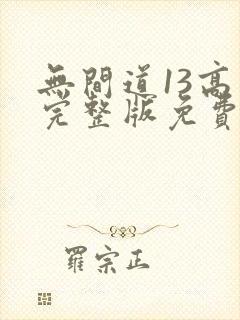 無間道13高
完整版免費
羅宗正